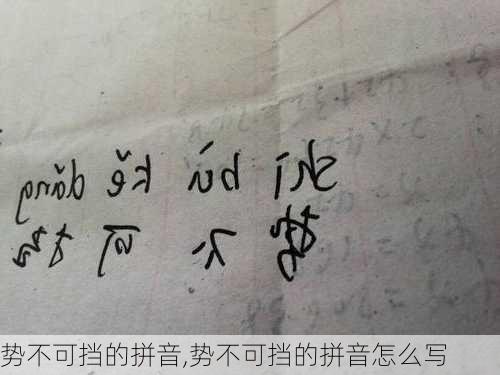 shì bù kě dǎng
势 不 可 挡
势不可挡的拼音,势不可挡的拼音怎么写